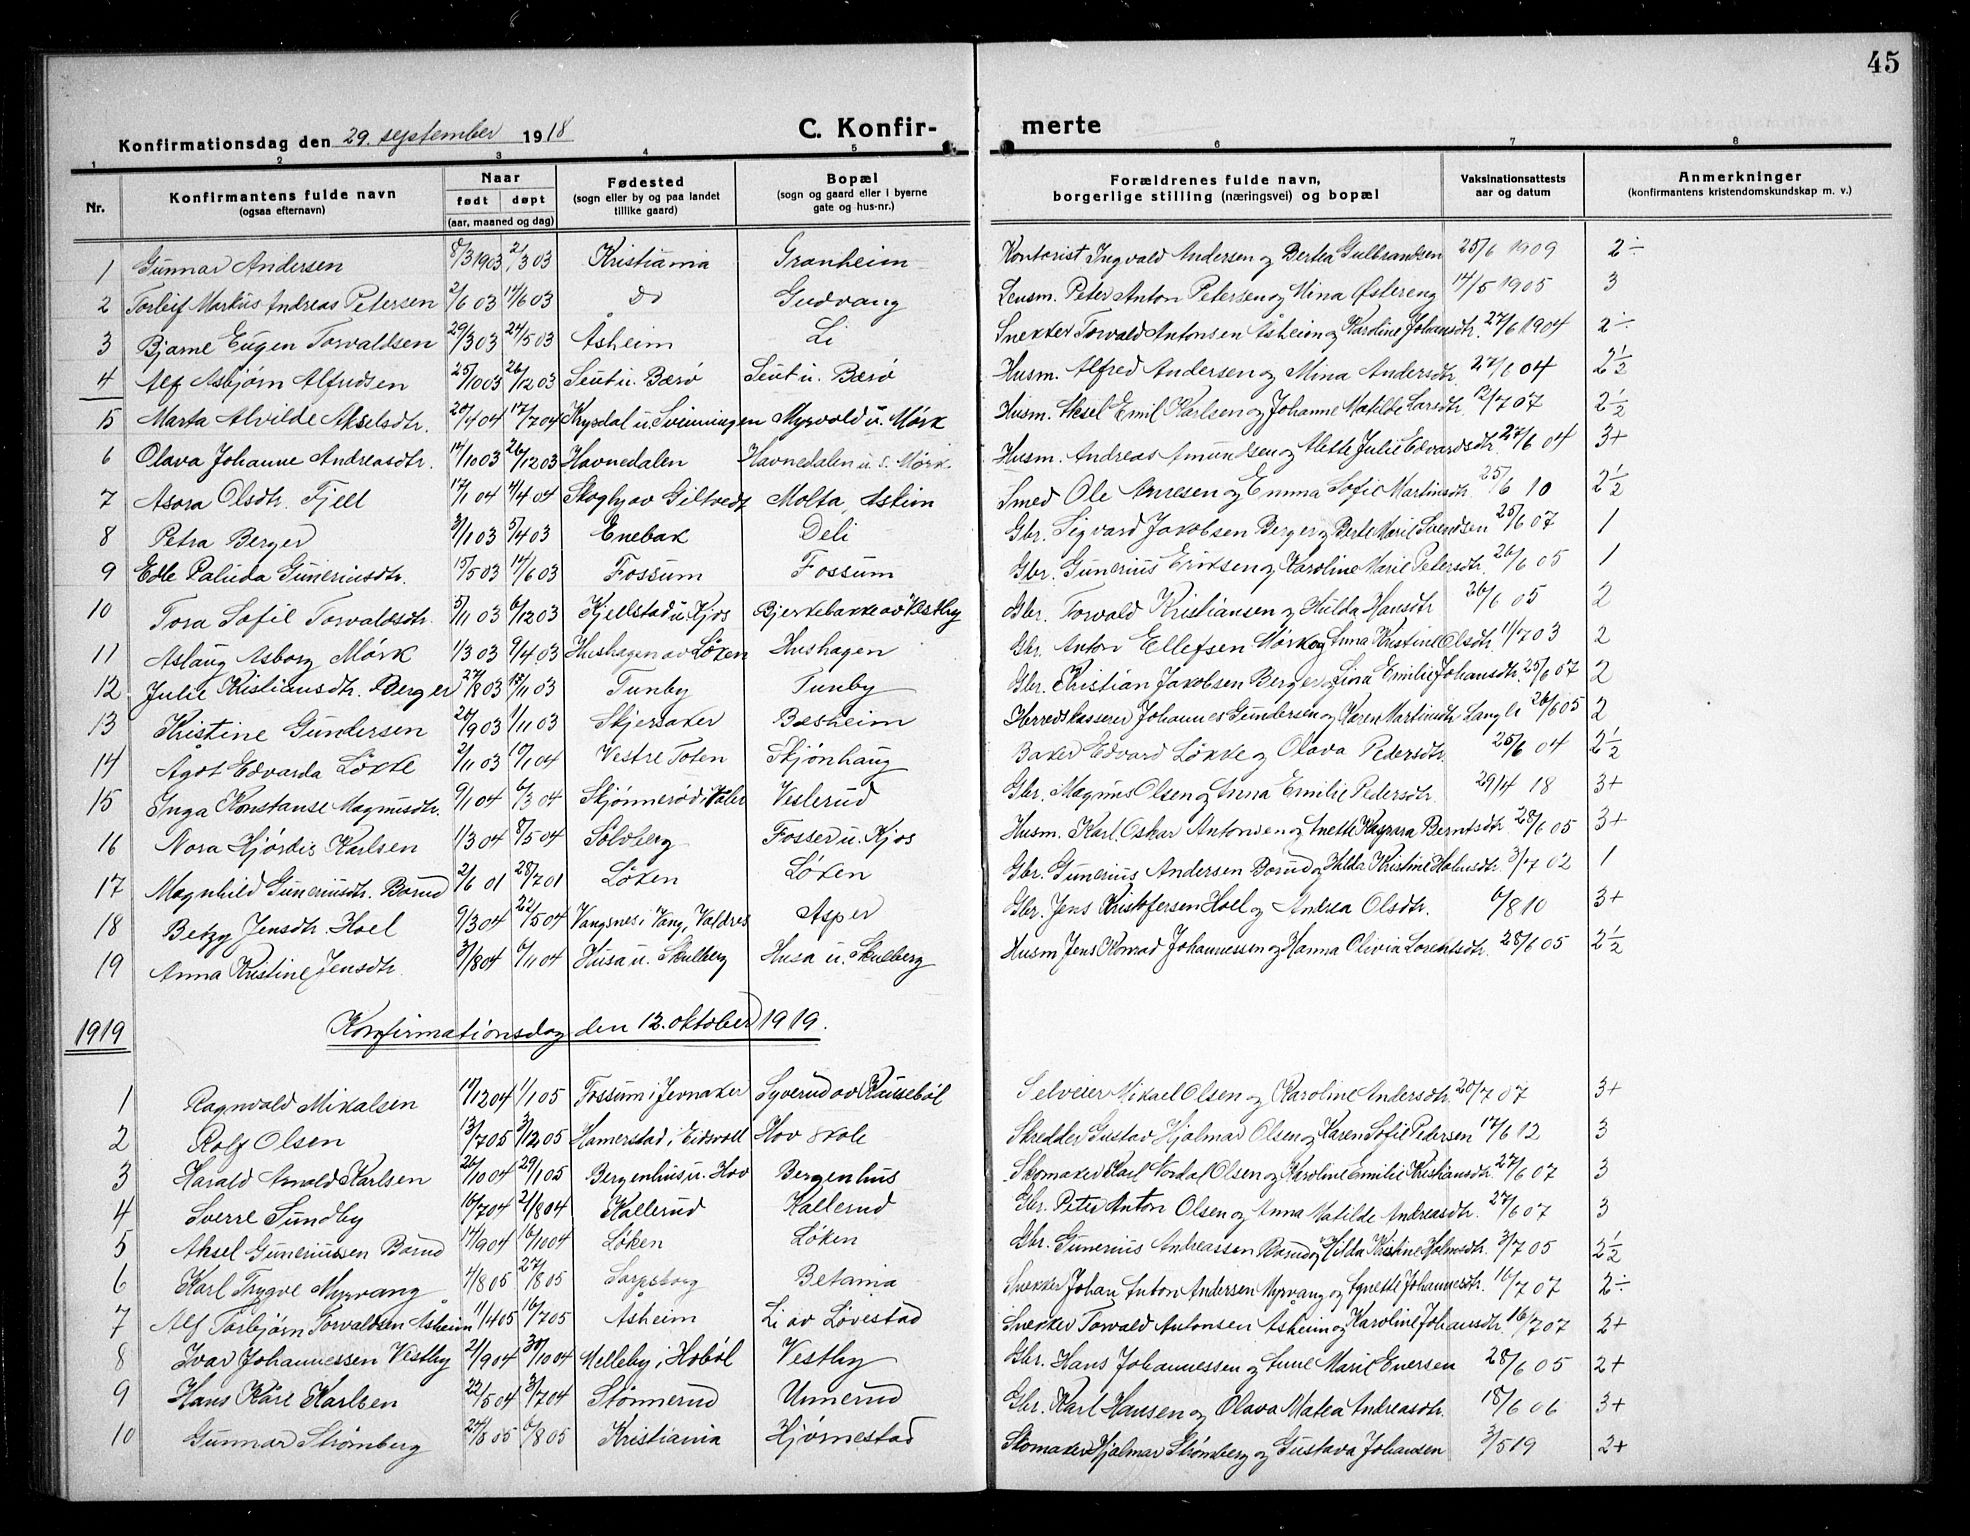 45
Konfirmationsdag den 29. september 1918 C. Konfir- merte
1 2 3 4 5 6 7 8
Nr. Konfirmantens fulde navn (ogsaa efternavn) Naar født døpt (aar, maaned og dag) Fødested (sogn eller by og paa landet tillike gaard) Bopæl (sogn og gaard eller i byerne gate og hus-nr.) Forældrenes fulde navn, borgerlige stilling (næringsvei) og bopæl Vaksinationsattests aar og datum Anmerkninger (konfirmantens kristendomskundskap m. v.)
1 Gunnar Andersen 8/3 1903 2/3 03 Kristiania Granheim Kontorist Ingvald Andersen og Bertea Gulbrandsen 25/6 1909 2÷
2 Torleif Markus Andreas Petersen 2/6 03 14/6 03 Do Gudvang Leusm. Peter Anton Petersen og Mina Østereng 14/5 1905 3
3 Bjarne Eugen Torvaldsen 29/3 03 24/5 03 Åsheim Li Snekker Torvald Antonsen Åsheim og Karoline Johansdtr. 27/6 1904 2÷
4 Alf Asbjørn Alfredsen 25/10 03 26/12 03 Seut u. Bærø Seut u. Bærø Husm. Alfred Andersen og Mina Andersdtr. 27/6 04 2½
5 Marta Alvilde Akselsdtr. 20/4 04 17/7 04 Krysdal u. Svinningen Myrvold u. Mørk Husm. Aksel Emil Karlsen og Johanne Matilde Larsdtr. 12/7 07 2½
6 Olava Johanne Andreasdtr. 14/10 03 26/12 03 Havnedalen Havnedalen u. s. Mørk Husm. Andreas Amundsen og Alette Julie Edvardsdtr. 27/6 04 3+
7 Asora Olsdtr. Fjell 17/1 04 4/4 04 Skogby av Giltvedt Molta, Askim Smed Ole Andresen og Emma Sofie Martinsdtr. 25/6 10 2½
8 Petra Berger 3/1 03 5/4 03 Enebak Deli Gbr. Sigvard Jakobsen Berger og Berte Marie Svendsen 25/6 07 1
9 Edle Palida Guneriusdtr. 15/5 03 14/6 03 Fossum Fossum Gbr. Gunerius Eriksen og Karoline Marie Petersdtr. 26/6 05 1
10 Tora Sofie Torvaldsdtr. 5/11 03 6/12 03 Kjellstad u. Kjos Bjerkebakke av Vestby Gbr. Torvald Kristiansen og Hulda Hansdtr 26/6 05 2
11 Aslaug Asborg Mørk 1/3 03 9/4 03 Hushagen av Løken Hushagen Gbr. Anton Ellefsen Mørk og Anna Kristine Olsdtr. 11/7 03 2
12 Julie Kristiansdtr. Berger 27/8 03 15/11 03 Tunby Tunby Gbr. Kristian Jakobsen Berger og Lina Emilie Johansdtr. 25/6 07 2
13 Kristine Gundersen 20/9 03 1/11 03 Skjersaker Bæsheim Herredskasserer Johannes Gundersen og Karen Martinsdtr. Langli 26/6 05 2
14 Ågot Edvarda Løkke 2/11 03 17/1 04 Vestre Toten Skjønhaug Baker Edvard Løkke og Olava Pedersdtr. 25/6 04 2½
15 Inga Konstanse Magnusdtr. 9/1 04 6/3 04 Skjønnerød i Våler Veslerud Gbr. Magnus Olsen og Anna Emilie Pedersdtr. 29/4 18 3+
16 Nora Hjørdis Karlsen 1/3 04 8/5 04 Sølvberg Fosser u. Kjos Husm. Karl Oskar Antonsen og Anette Kaspara Berntsdtr. 28/6 05 3+
17 Magnhild Guneriusdtr. Borud 2/6 01 28/7 01 Løken Løken Gbr. Gunerius Andersen Borud og Hilda Kristine Holmsdtr. 3/7 02 1
18 Betzy Jensdtr. Hoel 9/3 04 22/5 04 Vangsnes i Vang, Valdres Asper Gbr. Jens Kristofersen Hoel og Andrea Olsdtr. 6/8 10 3+
19 Anna Kristine Jensdtr. 3/8 04 6/11 04 Husa u. Skulberg Husa u. Skulberg Husm Jens Konrad Johannessen og Hanna Olivia Lorentsdtr. 28/6 05 2½
1919 Konfirmationsdag den 12. oktober 1919.
1 Ragnvald Mikalsen 17/12 04 1/1 05 Fossum i Jevnaker Syverud av Raussebøl Selveier Mikael Olsen og Karoline Andersdtr. 20/7 07 3+
2 Rolf Olsen 13/7 05 3/12 05 Hamerstad i Eidsvoll Hov skole Skredder Gustav Hjalmar Olsen og Karen Sofie Pedersen 17/6 12 3
3 Harald Arnold Karlsen 26/10 04 29/1 05 Bergenhus u. Hov Bergenhus Skomaker Karl Nordal Olsen og Karoline Emilie Kristiansdtr. 27/6 07 3
4 Sverre Sundby 16/7 04 21/8 04 Kallerud Kallerud Gbr. Peter Anton Olsen og Anna Matilde Andreasdtr. 27/6 07 3
5 Aksel Guneriussen Borud 14/9 04 16/10 04 Løken Løken Gbr. Gunerius Andreassen Borud og Hilda Kristine Holmsdtr. 3/7 05 2½
6 Karl Trygve Myrvang 4/8 05 27/8 05 Sarpsborg Betania Snekker Johan Anton Andersen Myrvang og Agnette Johannesdtr. 16/7 07 2÷
7 Alf Torbjørn Torvaldsen Åsheim 11/4 05 16/7 05 Åsheim Li av Løvestad Snekker Torvald Antonsen Åsheim og Karoline Johansdtr. 16/7 07 2+
8 Ivar Johannessen Vestby 21/9 04 30/10 04 Melleby i Hobøl Vestby Gbr. Hans Johannessen og Anne Marie Enersen 28/6 05 2+
9 Hans Kåre Karlsen 22/5 04 3/7 04 Stønnerud Unnerud Gbr. Karl Hansen og Olava Matea Andreasdtr. 18/6 06 3+
10 Gunnar Strømberg 24/3 05 6/8 05 Kristiania Hjørnestad Skomaker Hjalmar Strømberg og Gustava Johansen 3/5 19 2+